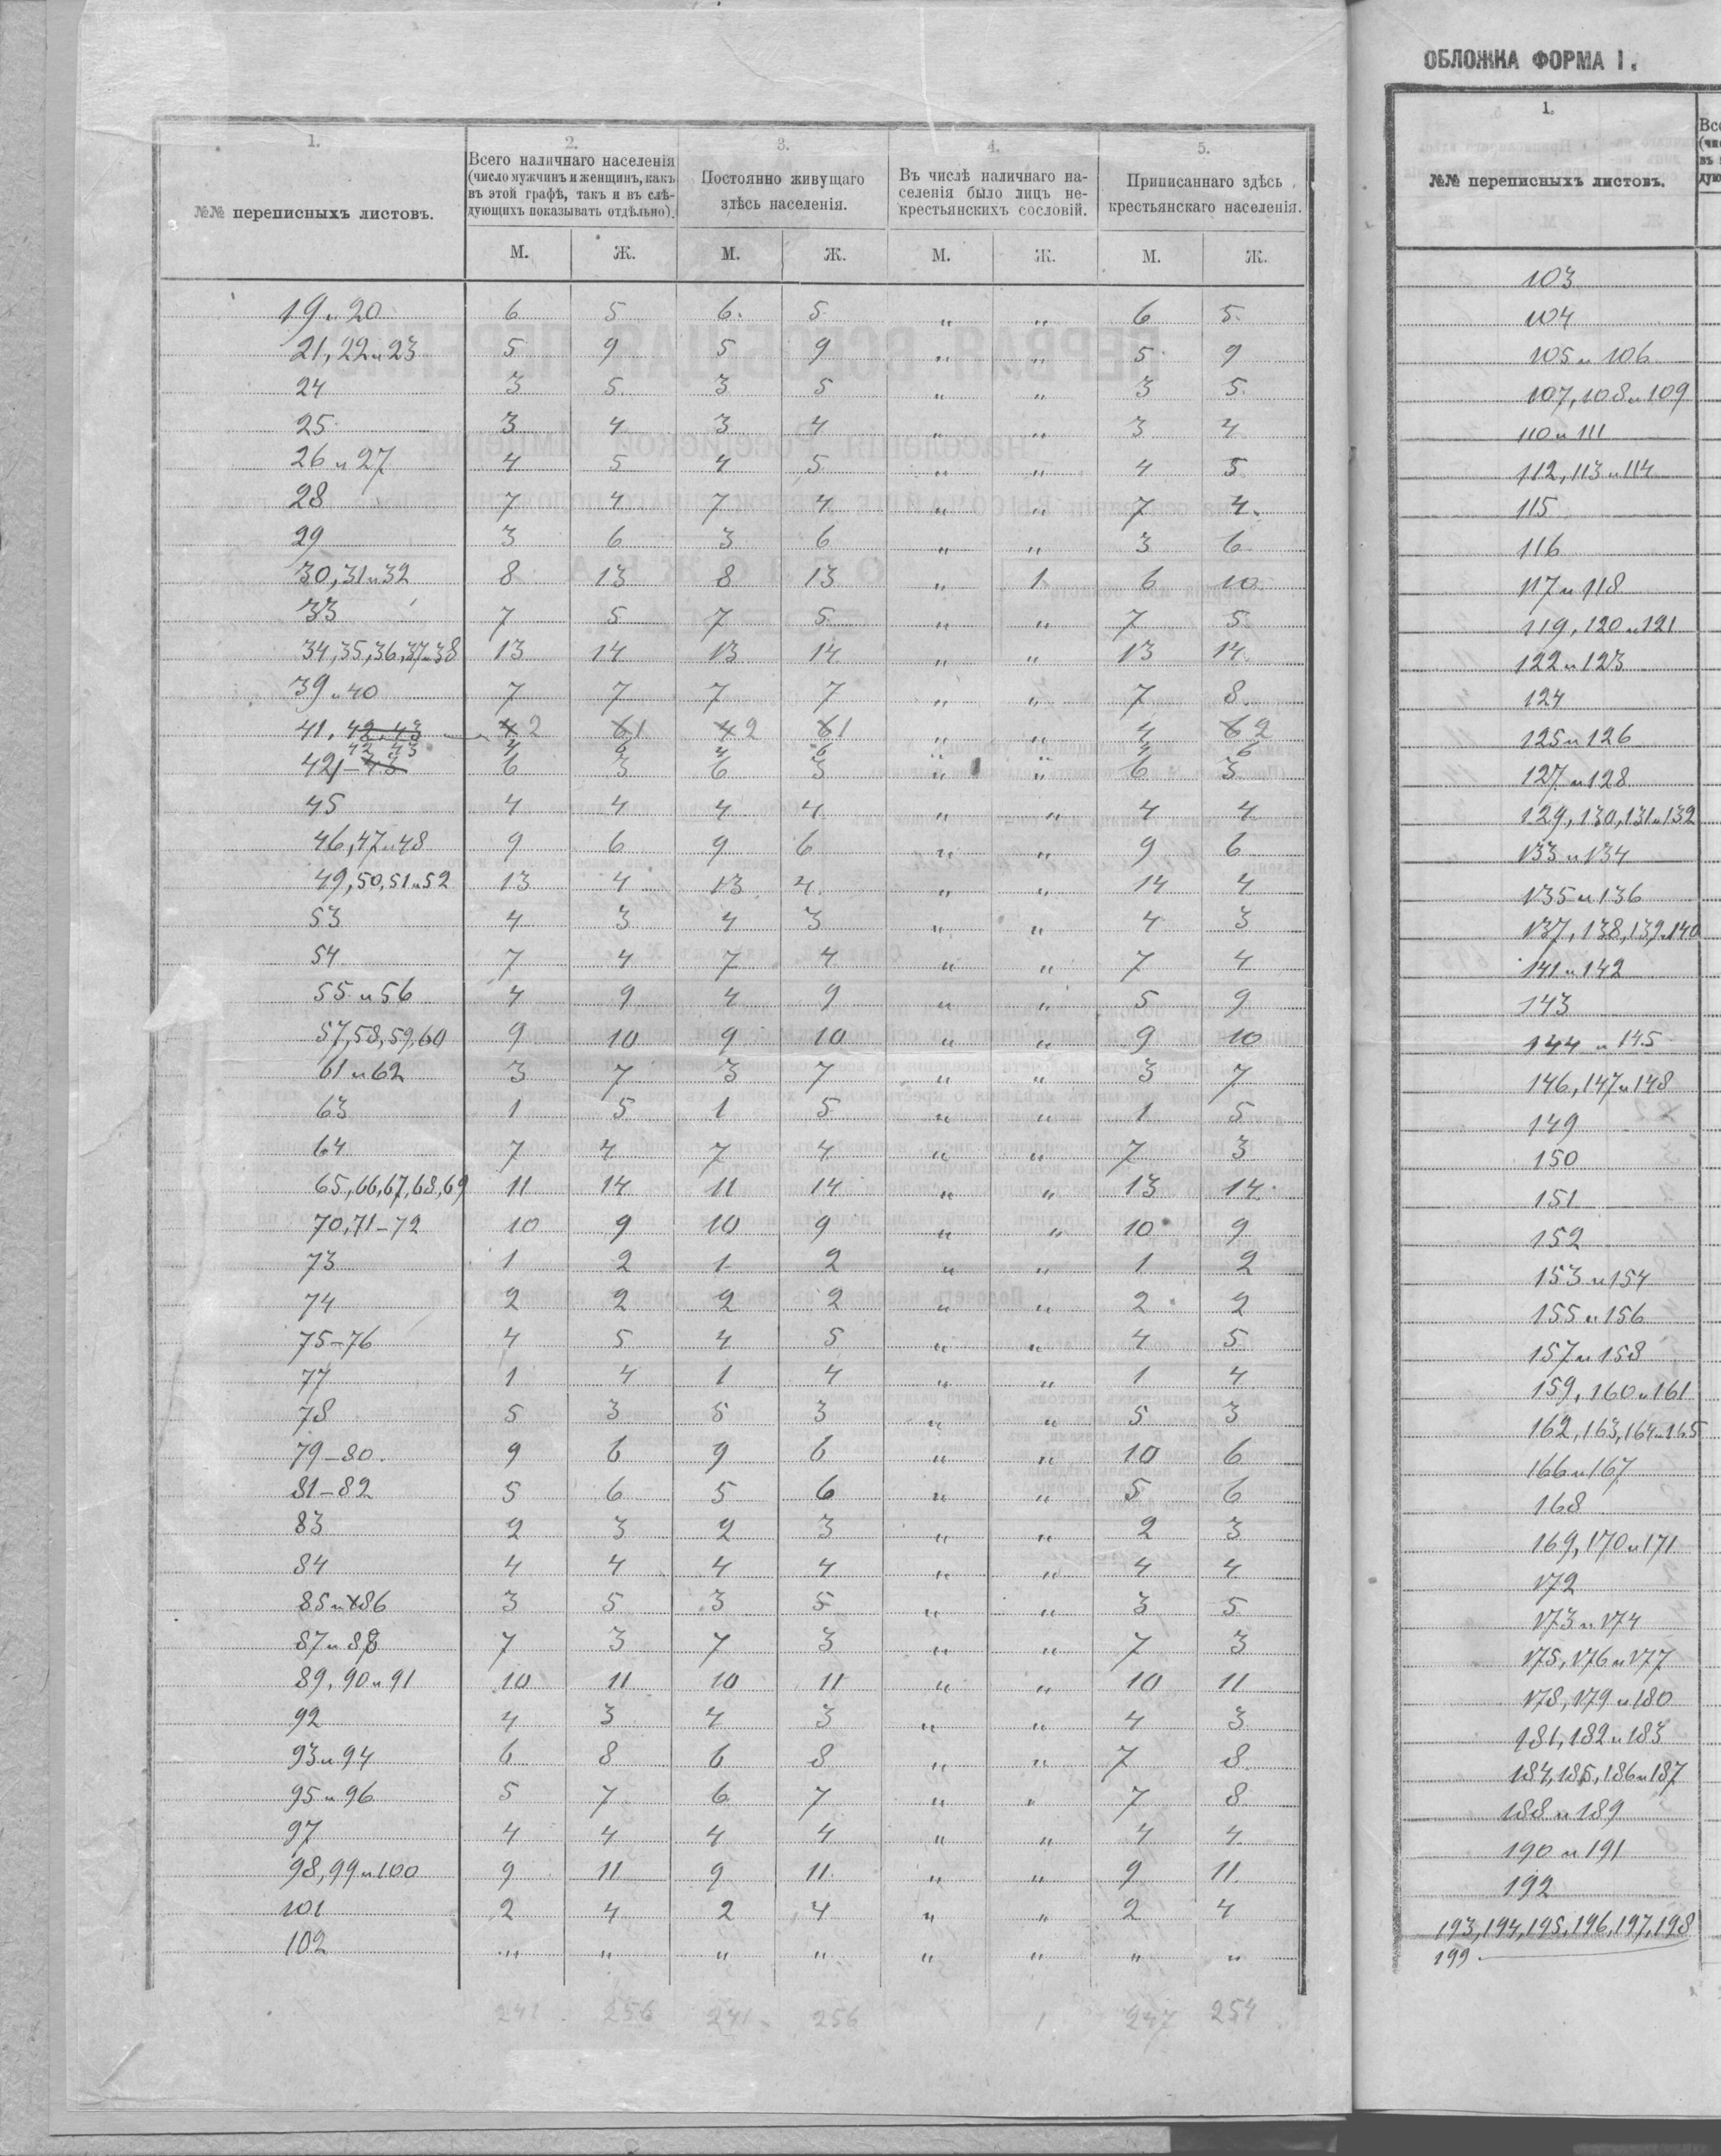 1. 2. 3. 4. 5.
№№ переписныхъ листовъ.
Всего наличнаго населенія
(число мужчинъ и женщинъ, какъ
въ этой графѣ, такъ и въ слѣ-
дующихъ показывать отдѣльно).
Постоянно живущаго
здѣсь населенія.
Въ числѣ наличнаго на-
селенія было лицъ не-
крестьянскихъ сословій.
Приписаннаго здѣсь
крестьянскаго населенія.
М. Ж. М. Ж. М. Ж. М. Ж.
19 и 20 6 5 6 5 " " 6 5
21, 22 и 23 5 9 5 9 " " 5 9
24 3 5 3 5 " " 3 5
25 3 4 3 4 " " 3 4
26 и 27 4 5 4 5 " " 4 5
28 7 4 7 4 " " 7 4
29 3 6 3 6 " " 3 6
30, 31 и 32 8 13 8 13 " 1 6 10
33 7 5 7 5 " " 7 5
34, 35, 36, 37 и 38 13 14 13 14 " " 13 14
39 и 40 7 7 7 7 " " 7 8
41, 42, 43 4 2 6 1 4 2 6 1 " " 4 6 2
42, 43 4 6 4 6 " " 4 6
6 3 6 3 " " 6 3
45 4 4 4 4 " " 4 4
46, 47 и 48 9 6 9 6 " " 9 6
49, 50, 51 и 52 13 4 13 4 " " 14 4
53 4 3 4 3 " " 4 3
54 7 4 7 4 " " 7 4
55 и 56 4 9 4 9 " " 5 9
57, 58, 59, 60 9 10 9 10 " " 9 10
61 и 62 3 7 3 7 " " 3 7
63 1 5 1 5 " " 1 5
64 7 4 7 4 " " 7 3
65, 66, 67, 68, 69 11 14 11 14 " " 13 14
70, 71 - 72 10 9 10 9 " " 10 9
73 1 2 1 2 " " 1 2
74 2 2 2 2 " " 2 2
75-76 4 5 4 5 " " 4 5
77 1 4 1 4 " " 1 4
78 5 3 5 3 " " 5 3
79-80. 9 6 9 6 " " 10 6
81-82 5 6 5 6 " " 5 6
83 2 3 2 3 " " 2 3
84 4 4 4 4 " " 4 4
85 и 86 3 5 3 5 " " 3 5
87 и 88 7 3 7 3 " " 7 3
89, 90 и 91 10 11 10 11 " " 10 11
92 4 3 4 3 " " 4 3
93 и 94 6 8 6 8 " " 7 8
95 и 96 5 7 6 7 " " 7 8
97 4 4 4 4 " " 4 4
98, 99 и 100 9 11 9 11 " " 9 11
101 2 4 2 4 " " 2 4
102 " " " " " " " "
241 256 241 256 1 247 254
ОБЛОЖКА ФОРМА I.
1.
№№ переписныхъ листовъ.
103
104
105 и 106
107, 108 и 109
110 и 111
112, 113 и 114
115
116
117 и 118
119, 120 и 121
122 и 123
124
125 и 126
127 и 128
129, 130, 131 и 132
133 и 134
135 и 136
137, 138, 139 и 140
141 и 142
143
144 и 145
146, 147 и 148
149
150
151
152
153 и 154
155 и 156
157 и 158
159, 160 и 161
162, 163, 164 и 165
166 и 167
168
169, 170 и 171
172
173 и 174
175, 176 и 177
178, 179 и 180
181, 182 и 183
184, 185, 186 и 187
188 и 189
190 и 191
192
193, 194, 195, 196, 197, 198
199